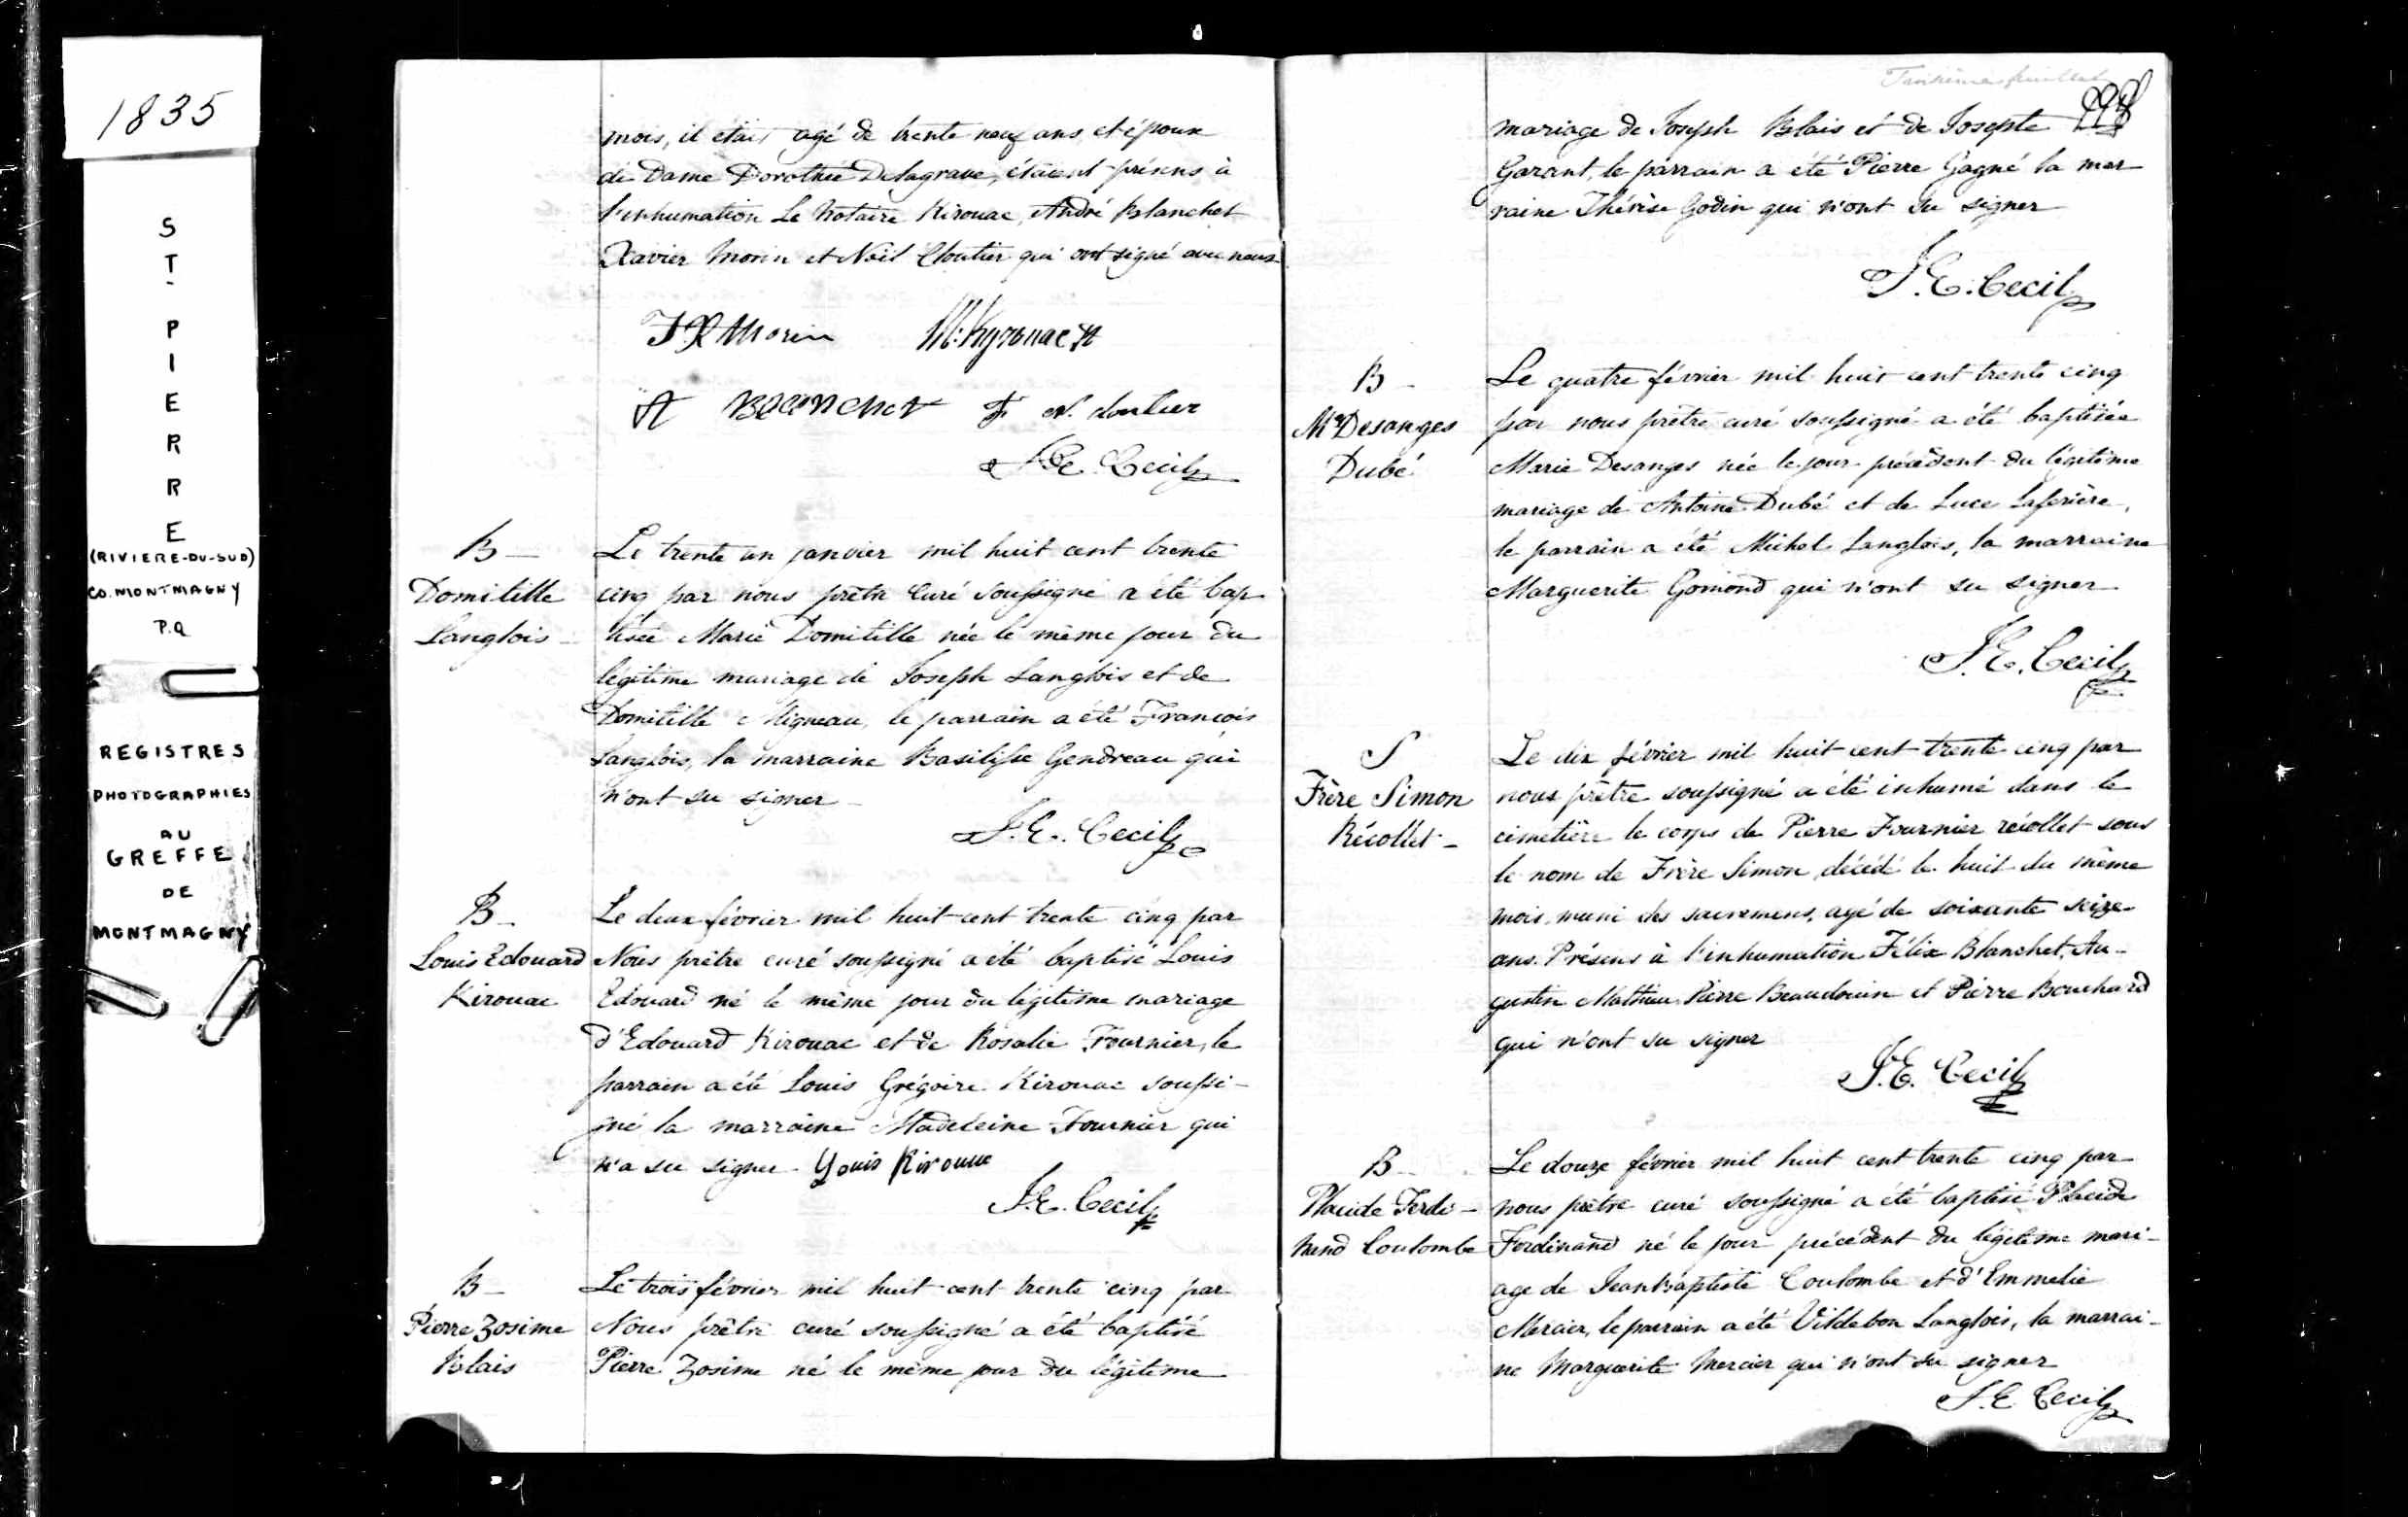 1835
S
T
P
I
E
R
R
E
(RIVIERE-DU-SUD)
CO. MONTMAGNY
P.Q
REGISTRES
PHOTOGRAPHIES
AU
GREFFE
DE
MONTMAGNY
mois, il était agé de trente neuf ans, et époux
de Dame Dorothée Delagrave, étaient présens à
l'inhumation Le Notaire Kirouac, André Blanchet
Xavier Morin et Noël Cloutier qui ont signé avec nous
F.X Morin M. Kyrouac N
A Blanchet N. Cloutier
J.E. Cecil
B—
Domitille
Langlois—
Le trente un janvier mil huit cent trente
cinq par nous prêtre Curé soussigné a été bap-
tisée Marie Domitille née le même jour du
légitime mariage de Joseph Langlois et de
Domitille Migneau, le parrain a été François
Langlois, la marraine Basilisse Gendreau qui
n'ont su signer—
J.E. Cecil
B—
Louis Edouard
Kirouac
Le deux février mil huit cent trente cinq par
Nous prêtre curé soussigné a été baptisé Louis
Edouard né le même jour du légitime mariage
d'Edouard Kirouac et de Rosalie Fournier, le
parrain a été Louis Grégoire Kirouac soussi-
gné la marraine Madeleine Fournier qui
n'a su signer. Louis Kirouac
J.E. Cecil
B—
Pierre Zosime
Blais
Le trois février mil huit cent trente cinq par
Nous prêtre curé soussigné a été baptisé
Pierre Zosime né le même jour du légitime
Troisième feuillet
mariage de Joseph Blais et de Josepte
Garant, le parrain a été Pierre Gagné la mar
raine Thérèse Godin qui n'ont su signer
J.E. Cecil
B—
Mie Desanges
Dubé
Le quatre février mil huit cent trente cinq
par nous prêtre curé soussigné a été baptisée
Marie Desanges née le jour précédent du légitime
mariage de Antoine Dubé et de Luce Laferière,
le parrain a été Michel Langlois, la marraine
Marguerite Gomond qui n'ont su signer
J.E. Cecil
S
Frère Simon
Récollet—
Le dix février mil huit cent trente cinq par
nous prêtre soussigné a été inhumé dans le
cimetière le corps de Pierre Fournier récollet sous
le nom de Frère Simon, décédé le huit du même
mois, muni des sacremens, agé de soixante seize
ans. Présens à l'inhumation Félix Blanchet, Au-
gustin Mathieu, Pierre Beaudouin et Pierre Bouchard
qui n'ont su signer
J.E. Cecil
B—
Placide Ferdi-
nand Coulombe
Le douze février mil huit cent trente cinq par
nous prêtre curé soussigné a été baptisé Placide
Ferdinand né le jour précédent du légitime mari-
age de Jean Baptiste Coulombe et d'Emmelie
Mercier, le parrain a été Vildebon Langlois, la marrai-
ne Marguerite Mercier qui n'ont su signer
J.E. Cecil